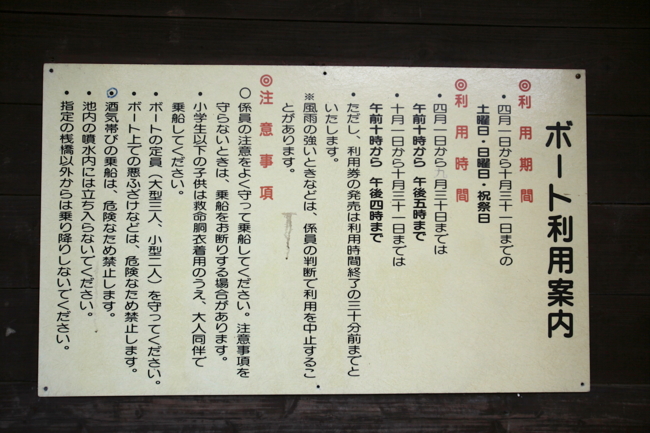 ボート利用案内
◎利用期間
・四月一日から十月三十一日までの
土曜日・日曜日・祝祭日
◎利用時間
・四月一日から九月三十日までは
午前十時から 午後五時まで
・十月一日から十月三十一日までは
午前十時から 午後四時まで
・ただし、利用券の発売は利用時間終了の三十分前までと
いたします。
※風雨の強いときなどは、係員の判断で利用を中止するこ
とがあります。
◎注意事項
○係員の注意をよく守って乗船してください。注意事項を
守らないときは、乗船をお断りする場合があります。
・小学生以下の子供は救命胴衣着用のうえ、大人同伴で
乗船してください。
・ボートの定員(大型三人、小型二人)を守ってください。
・ボート上での悪ふざけなどは、危険なため禁止します。
◎酒気帯びの乗船は、危険なため禁止します。
・池内の噴水内には立ち入らないでください。
・指定の桟橋以外からは乗り降りしないでください。